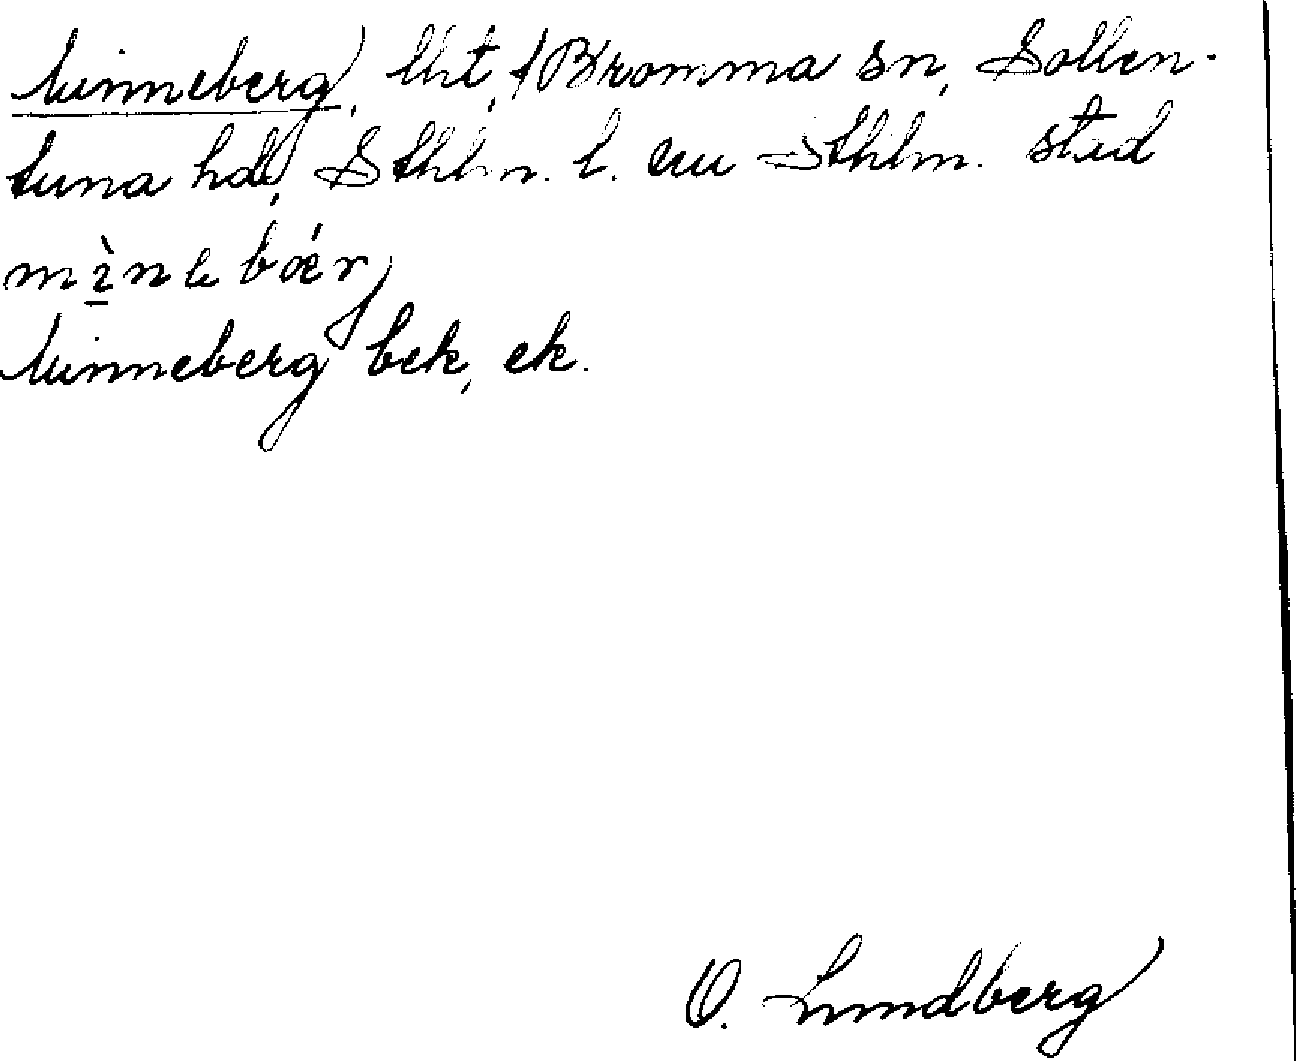 Minneberg, lht, f Bromma sn, Sollen-
tuna hd, Sthlm. l. nu Sthlm. stad
mìnebǽrj
Minneberg bek, ek.
O. Lundberg